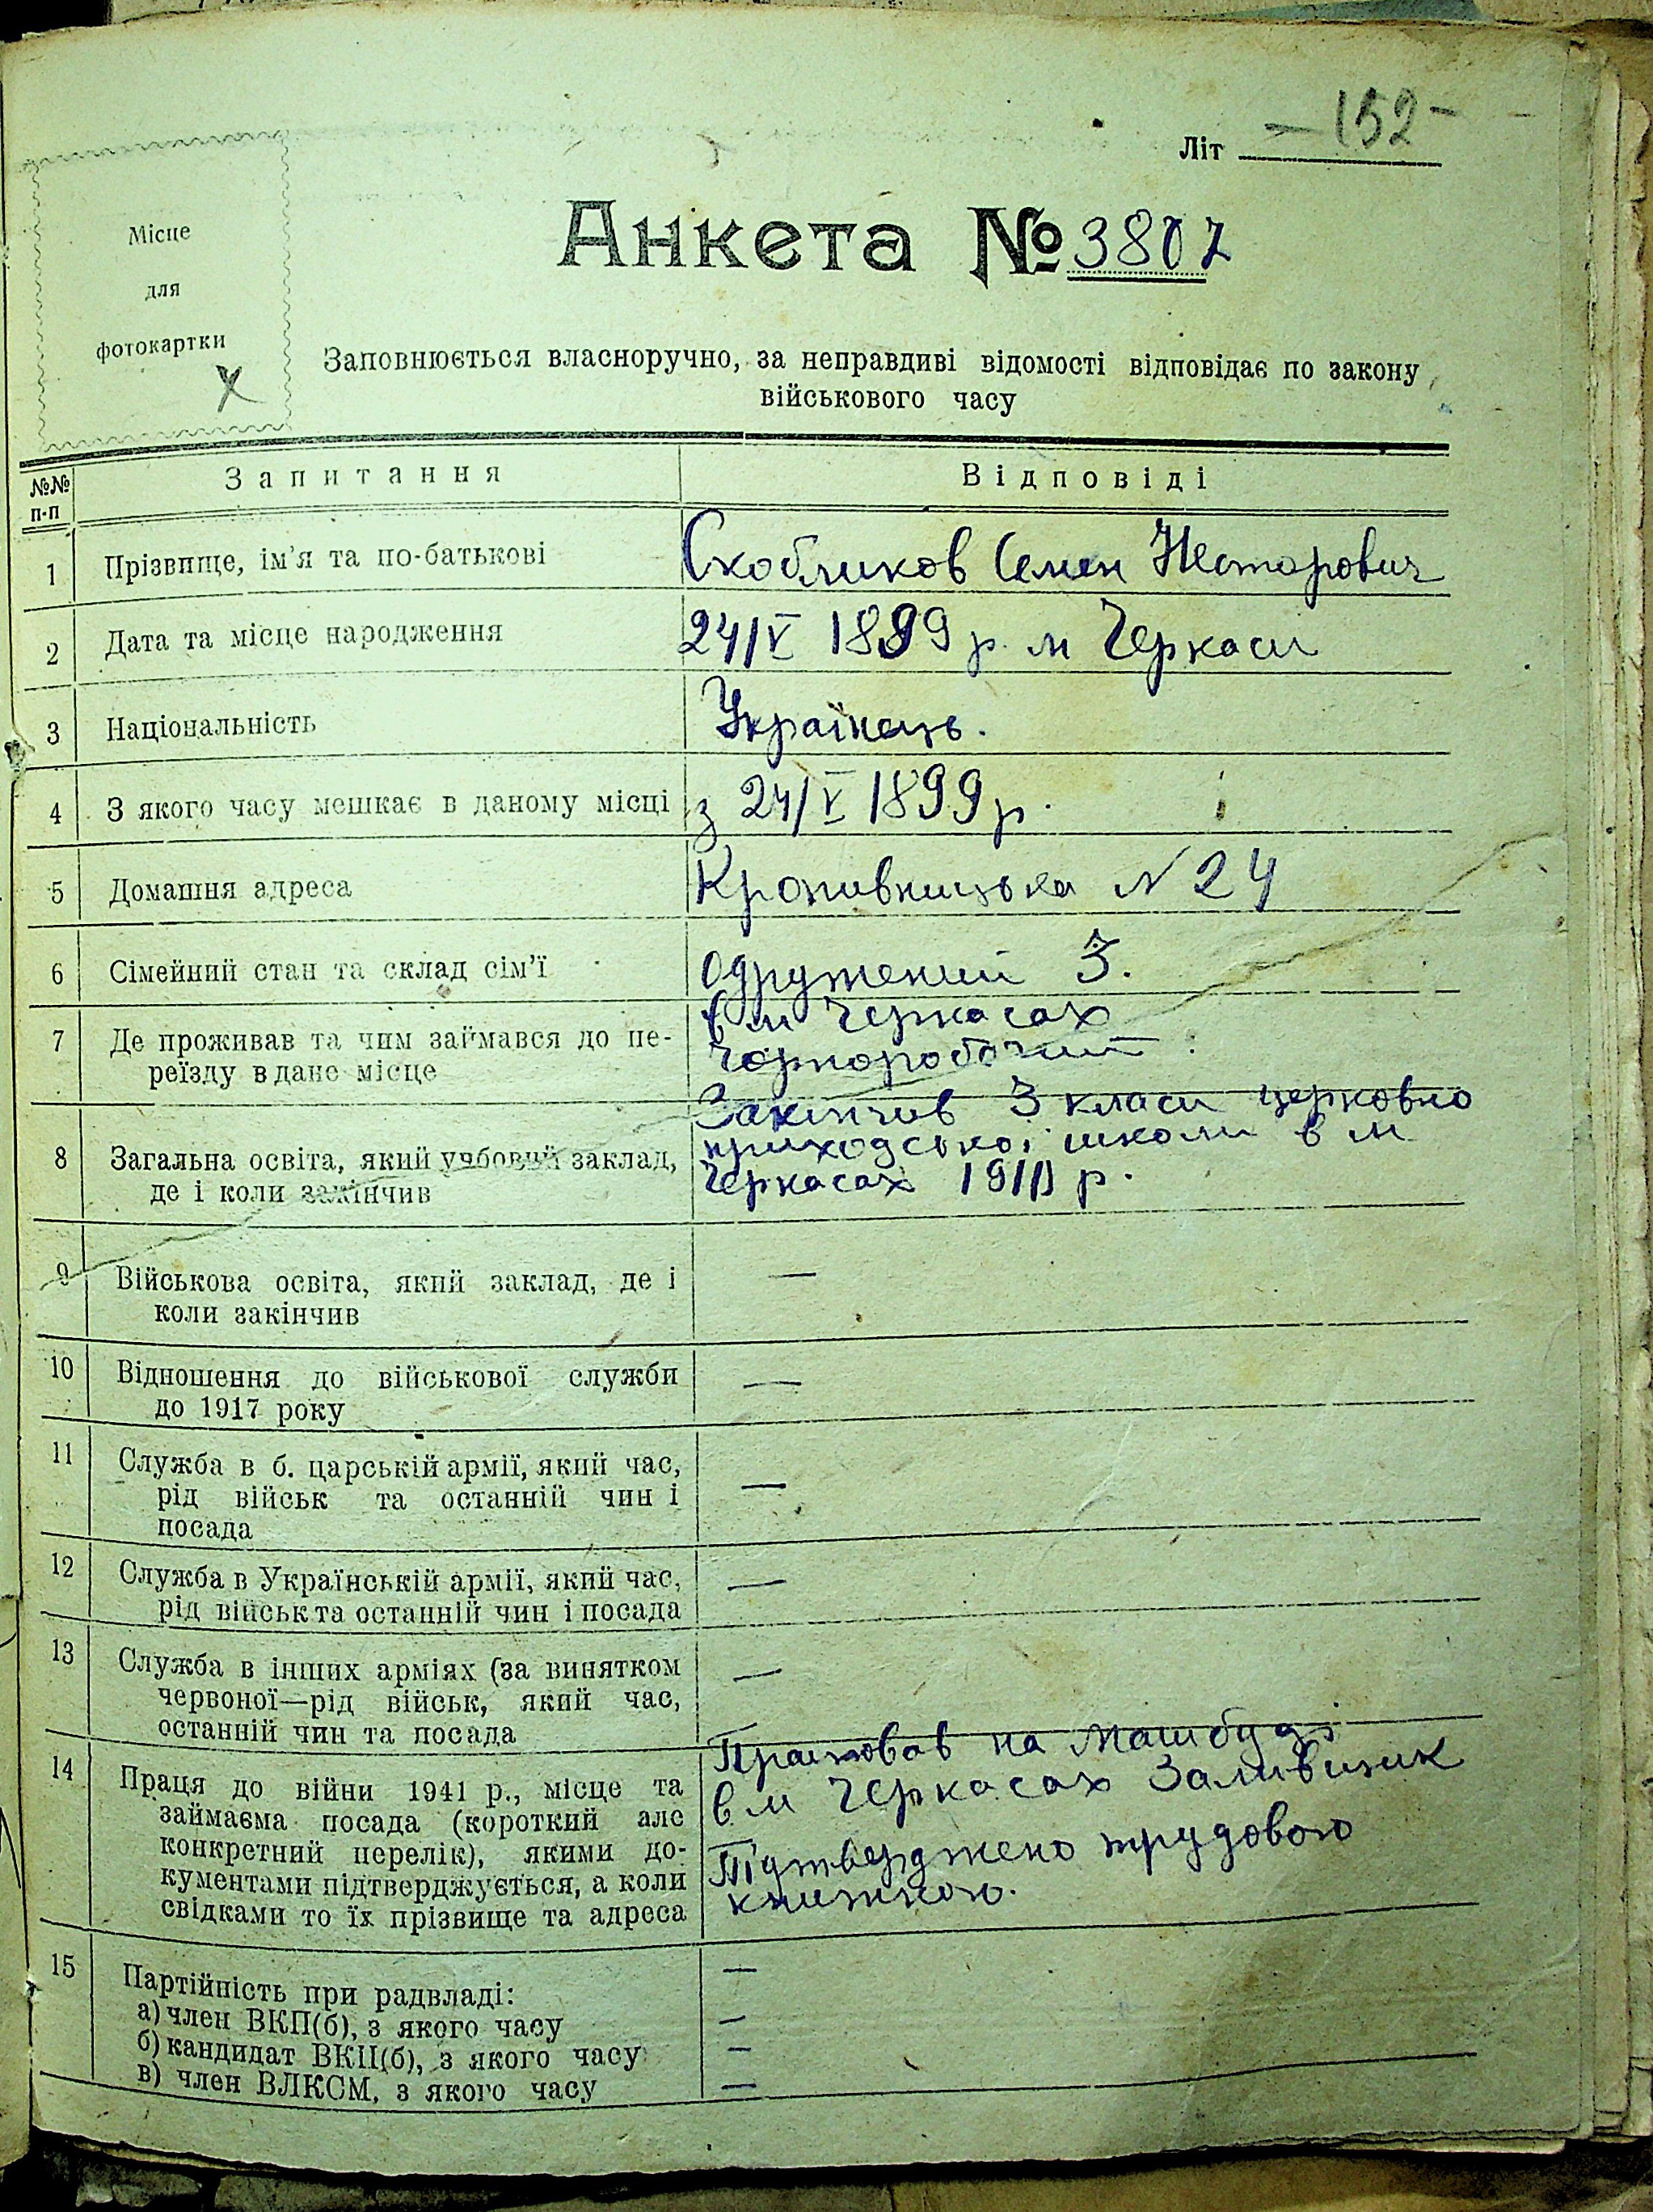 Літ —152—
Місце
для
фотокартки
х
Анкета № 3807
Заповнюється власноручно, за неправдиві відомості відповідає по закону
військового часу
№№ п-п Запитання Відповіді
1 Прізвище, ім'я та по-батькові Скобликов Семен Несторович
2 Дата та місце народження 24/V 1899 р. м Черкаси
3 Національність Українець.
4 З якого часу мешкає в даному місці з 24/V 1899 р.
5 Домашня адреса Кропивницька N 24
6 Сімейний стан та склад сім'ї одружений 3.
7 Де проживав та чим займався до пе-
реїзду в дане місце
в м Черкасах
чорноробочий
8 Загальна освіта, який учбовий заклад,
де і коли закінчив
Закінчив 3 класи церковно
приходської школи в м
Черкасах р.
9 Військова освіта, який заклад, де і
коли закінчив
—
10 Відношення до військової служби
до 1917 року
—
11 Служба в б. царській армії, який час,
рід військ та останній чин і
посада
—
12 Служба в Українській армії, який час,
рід військ та останній чин і посада
—
13 Служба в інших арміях (за винятком
червоної—рід військ, який час,
останній чин та посада
—
14 Праця до війни 1941 р., місце та
займаєма посада (короткий але
конкретний перелік), якими до-
кументами підтверджується, а коли
свідками то їх прізвище та адреса
Працював на Машбуді
в м Черкасах Заливщик
Підтверджено трудовою
книжкою.
15 Партійність при радвладі: —
а) член ВКП(б), з якого часу —
б) кандидат ВКП(б), з якого часу —
в) член ВЛКСМ, з якого часу —